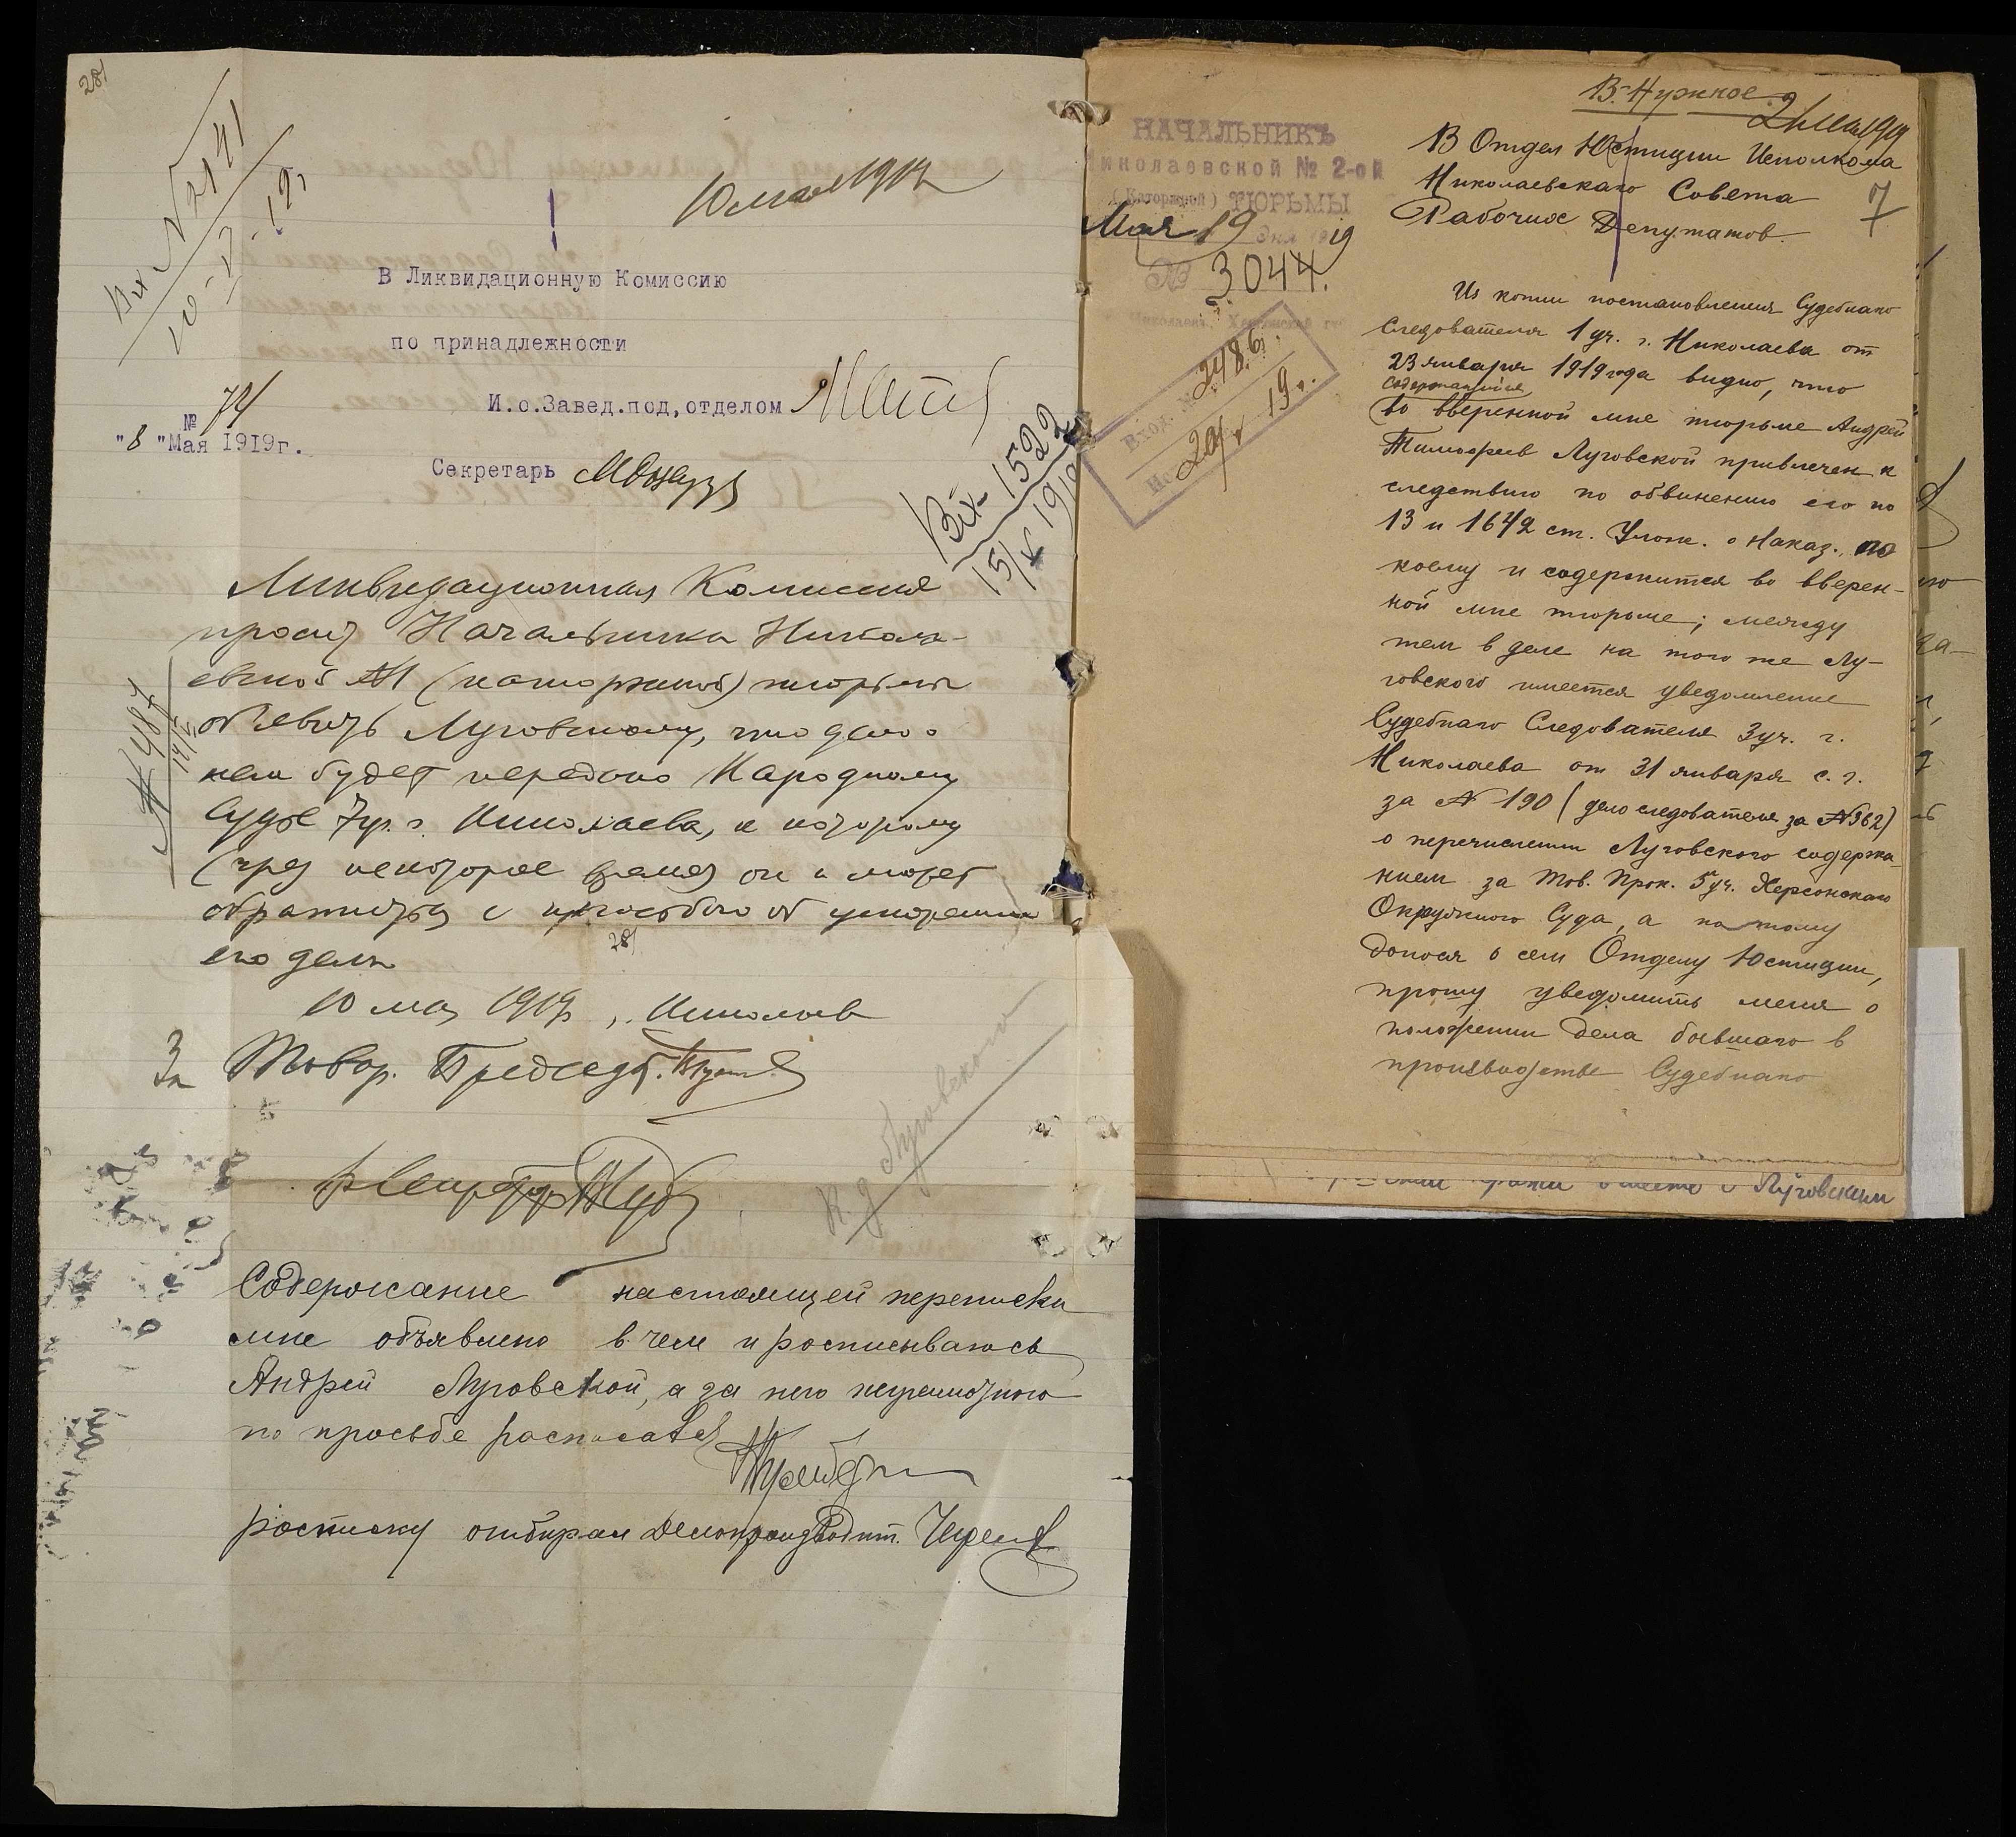 281
Вх № 2141
10-V-19,
10 мая 1919
В Ликвидационную Комиссию
по принадлежности
И.о.Завед.под,отделом
№ 74
"8 "Мая 1919г.
Секретарь
Вх. 1522
15/V 1919
Ликвидационная Комиссия
просит Начальника Никола-
евской (каторжной) тюрьмы
объявить Луговскому, что дело о
нем будет передано Народному
Судье 7 уч. г. Николаева, к которому
(чрез некоторое время) он и может
обратиться с просьбою об ускорении
его дела
281
10 мая 1919 г. Николаев
За Товар. Председ.
К д Луговского
Содержание настоящей переписки
мне объявлено в чем и росписываюсь
Андрей Луговской, а за него неграмотного
по просьбе расписался
росписку отбирал Делопроизводит.
В. Нужное
21 мая 1919
НАЧАЛЬНИКЪ
Николаевской № 2-ой
(Каторжной) ТЮРЬМЫ
Мая 19 дня 1919
№ 3044.
Николаевъ, Херсонской губ.
Вход. № 2486.
20/V 19 г.
В Отдел Юстиции Исполкома
Николаевскаго Совета
Рабочих Депутатов.
7
Из копии постановления Судебнаго
Следователя 1 уч. г. Николаева от
23 января 1919 года видно, что
содержащийся
во вверенной мне тюрьме Андрей
Тимофеев Луговской привлечен к
следствию по обвинению его по
13 и 1642 ст. Улож. о Наказ., по
коему и содержится во вверен-
ной мне тюрьме; между
тем в деле на того же Лу-
говского имеется уведомление
Судебнаго Следователя 3 уч. г.
Николаева от 31 января с. г.
за № 190 (дело следователя за № 362)
о перечислении Луговского содержа-
нием за Тов. Прок. 5 уч. Херсонскаго
Окружного Суда, а потому
донося о сем Отделу Юстиции,
прошу уведомить меня о
положении дела бывшаго в
производстве Судебнаго
вместе с Луговским